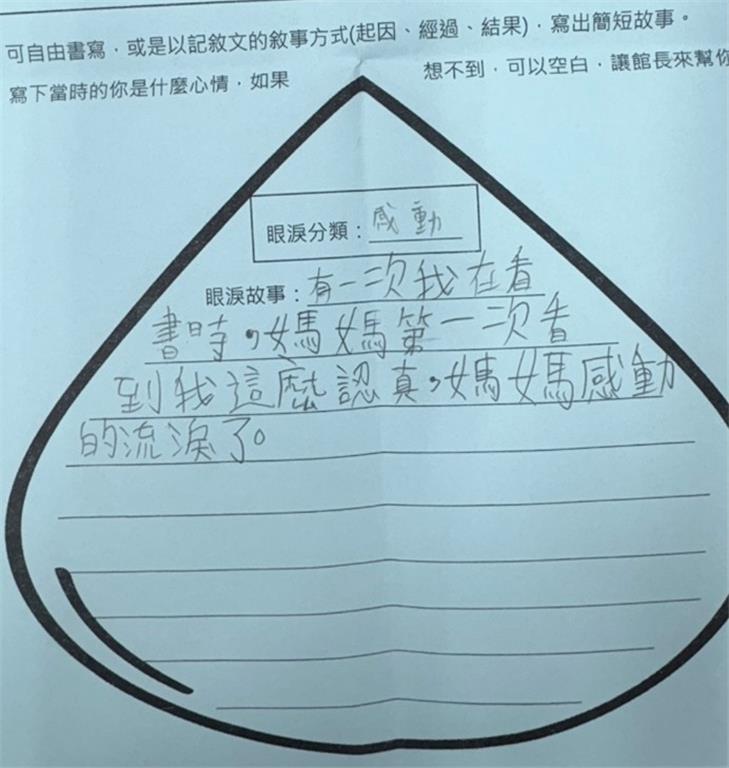 可自由書寫，或是以記敘文的敘事方式(起因、經過、結果)，寫出簡短故事。
寫下當時的你是什麼心情，如果 想不到，可以空白，讓館長來幫你
眼淚分類：感動
眼淚故事：有一次我在看
書時，媽媽第一次看
到我這麼認真，媽媽感動
的流淚了。